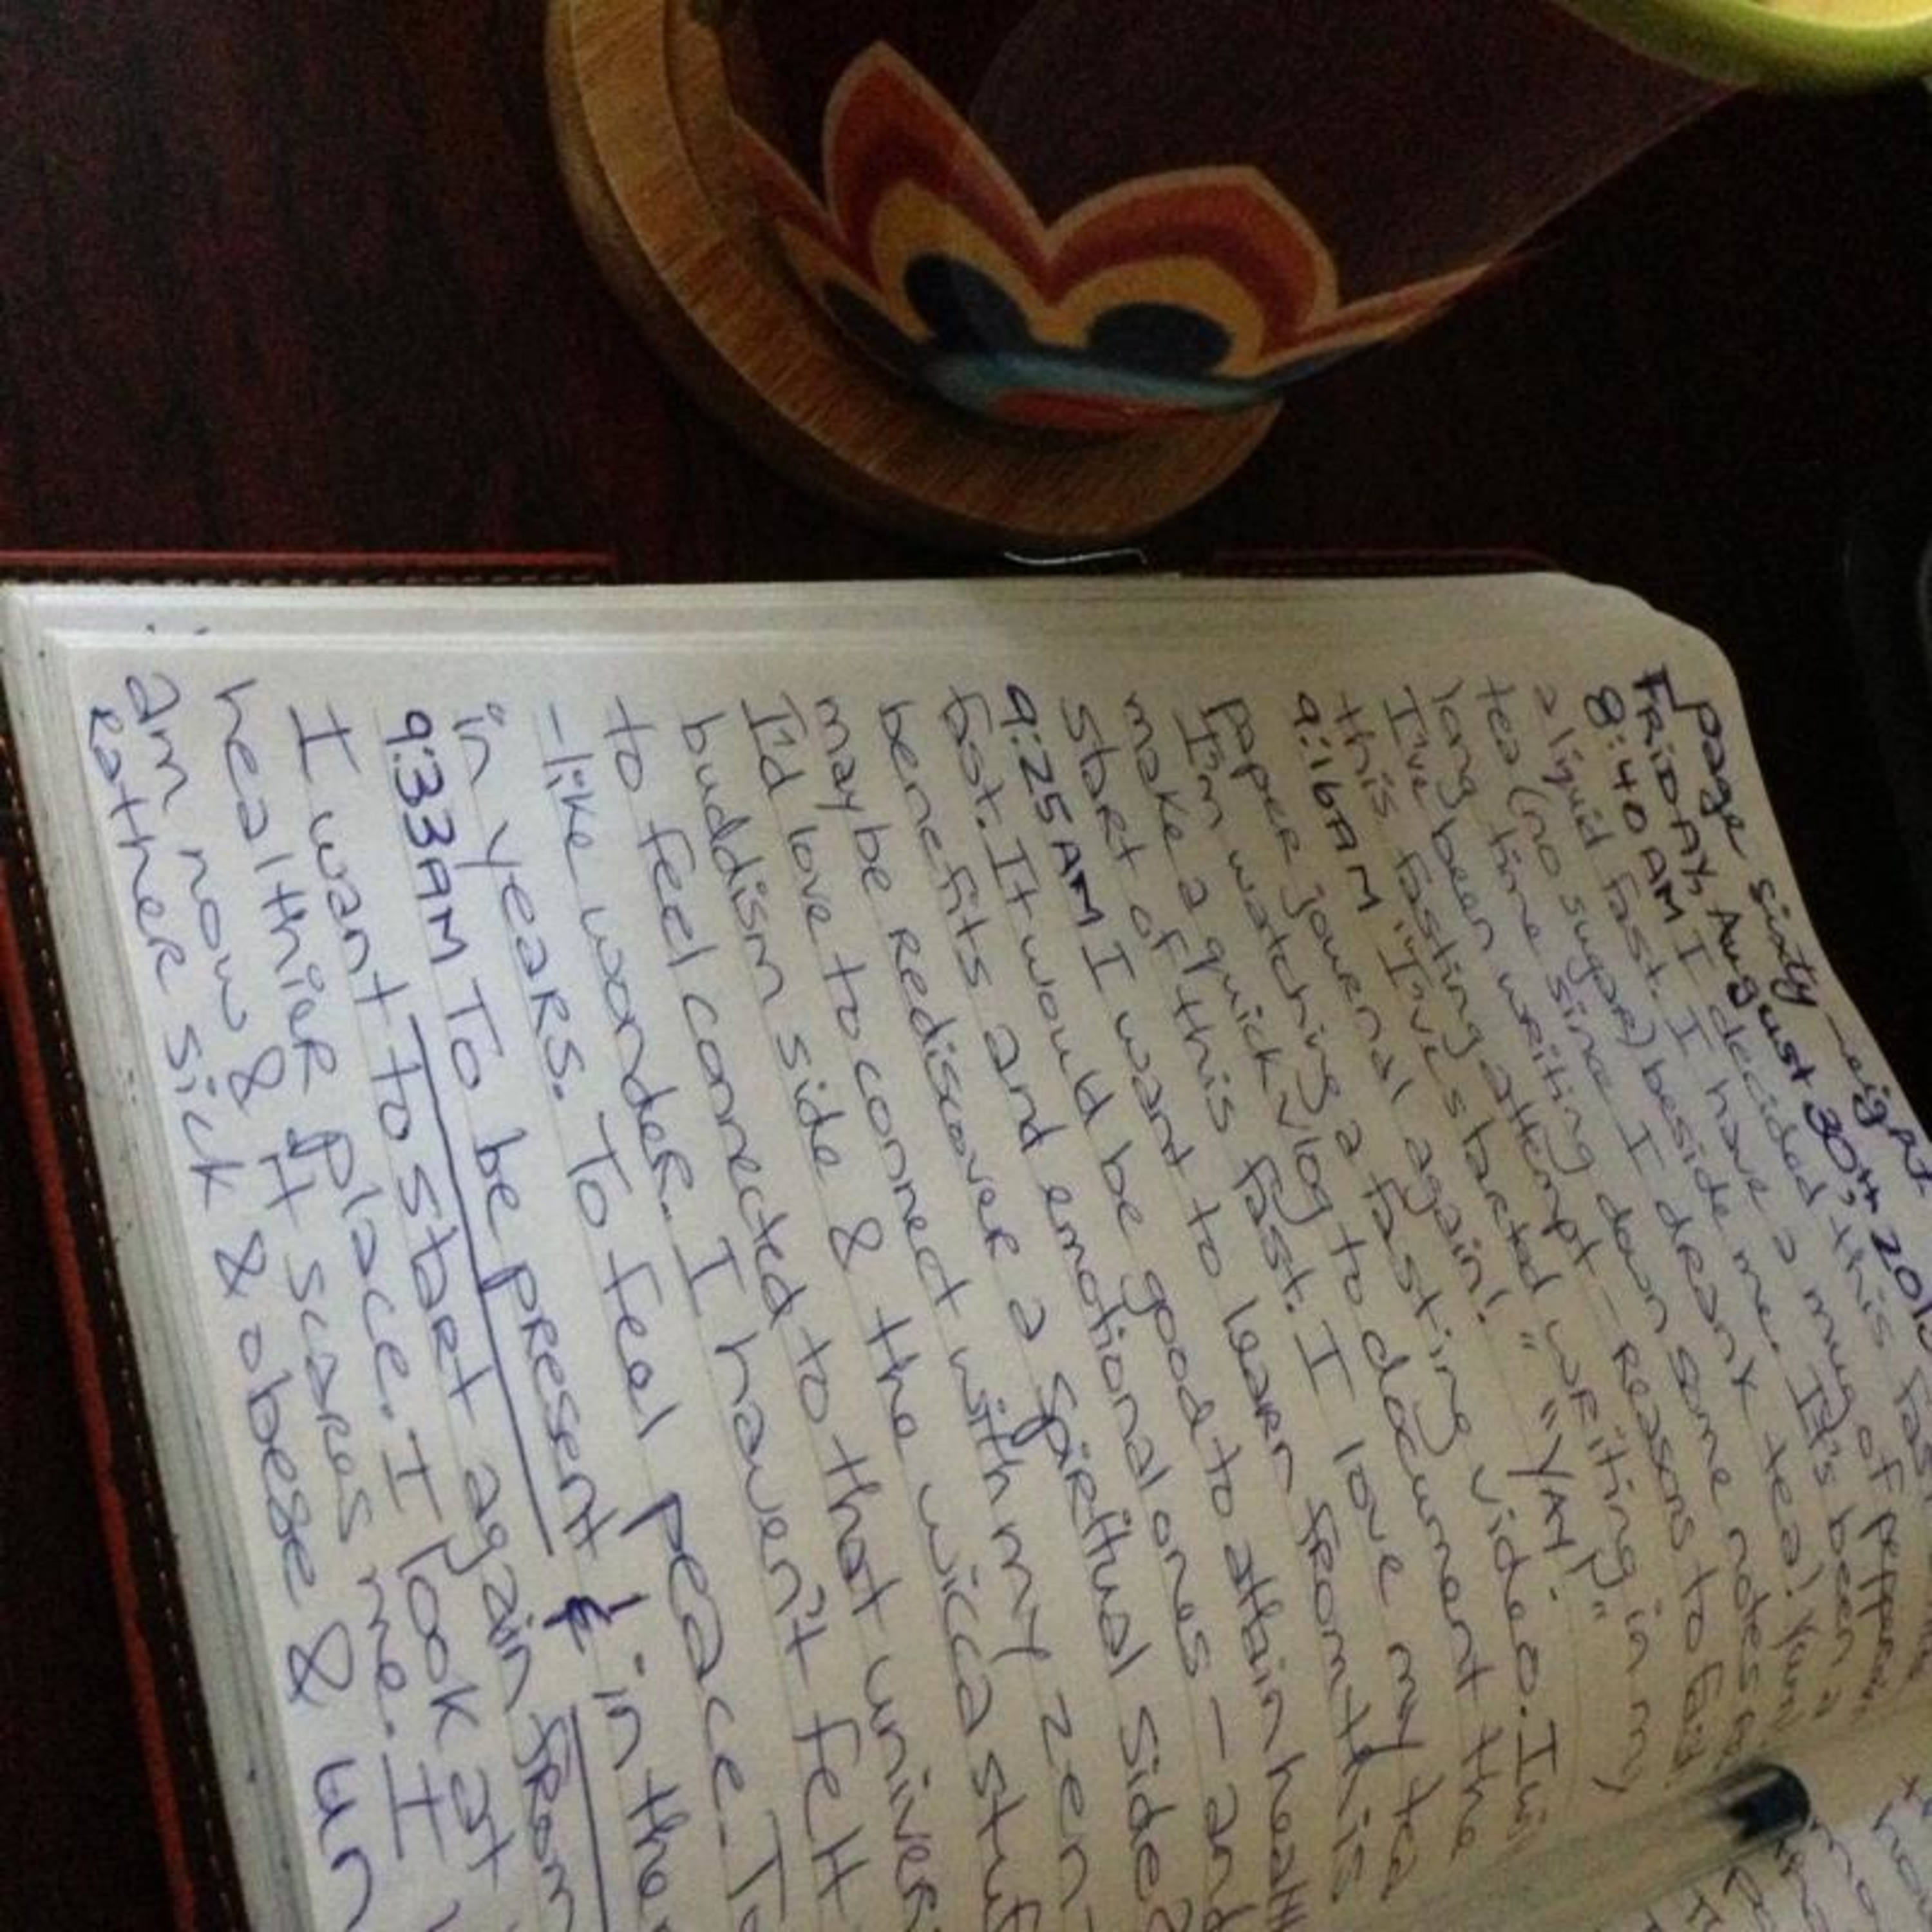 page sixty-eight
FRIDAY, August 30th, 201
8:40 AM I decided this
a liquid fast. I have a mug of pepperm
tea (no sugar) beside me. It's been a
long time since I drank tea! Yum!
I've been writing down some notes
this fasting attempt - reasons to fast.
9:16AM "I've started writing in my
paper journal again!" "YAY!"
I'm watching a fasting video. I
make a quick vlog to document the
start of this fast. I love my tea
9:25AM I want to learn from this
fast. It would be good to attain heal
benefits and emotional ones - and
maybe rediscover a spiritual side?
I'd love to connect with my zen-
buddism side & the wicca stuf
to feel connected to that univer
-like wonder. I haven't felt
in years. To feel peace. To
9:33AM To be present & in the
I want to start again from
healthier place. I look at
am now & It scares me. I
rather sick & obese & un